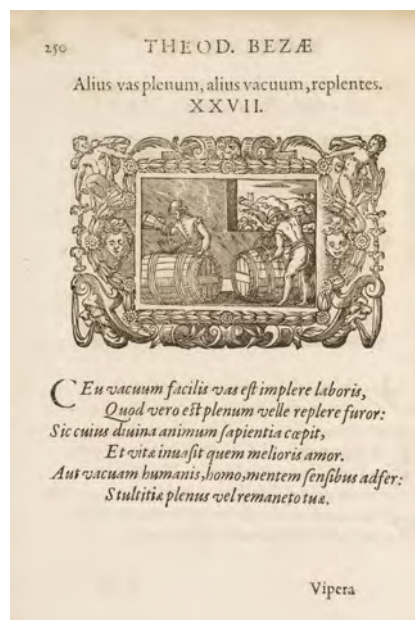 250 THEOD. BEZÆ
Alius vas plenum, alius vacuum, replentes.
XXVII.
CEu vacuum facilis vas eſt implere laboris,
Quod vero eſt plenum velle replere furor:
Sic cuius diuina animum ſapientia cœpit,
Et vitæ inuaſit quem melioris amor.
Aut vacuam humanis, homo, mentem ſenſibus adfer:
Stultitiæ plenus vel remaneto tuæ.
Vipera